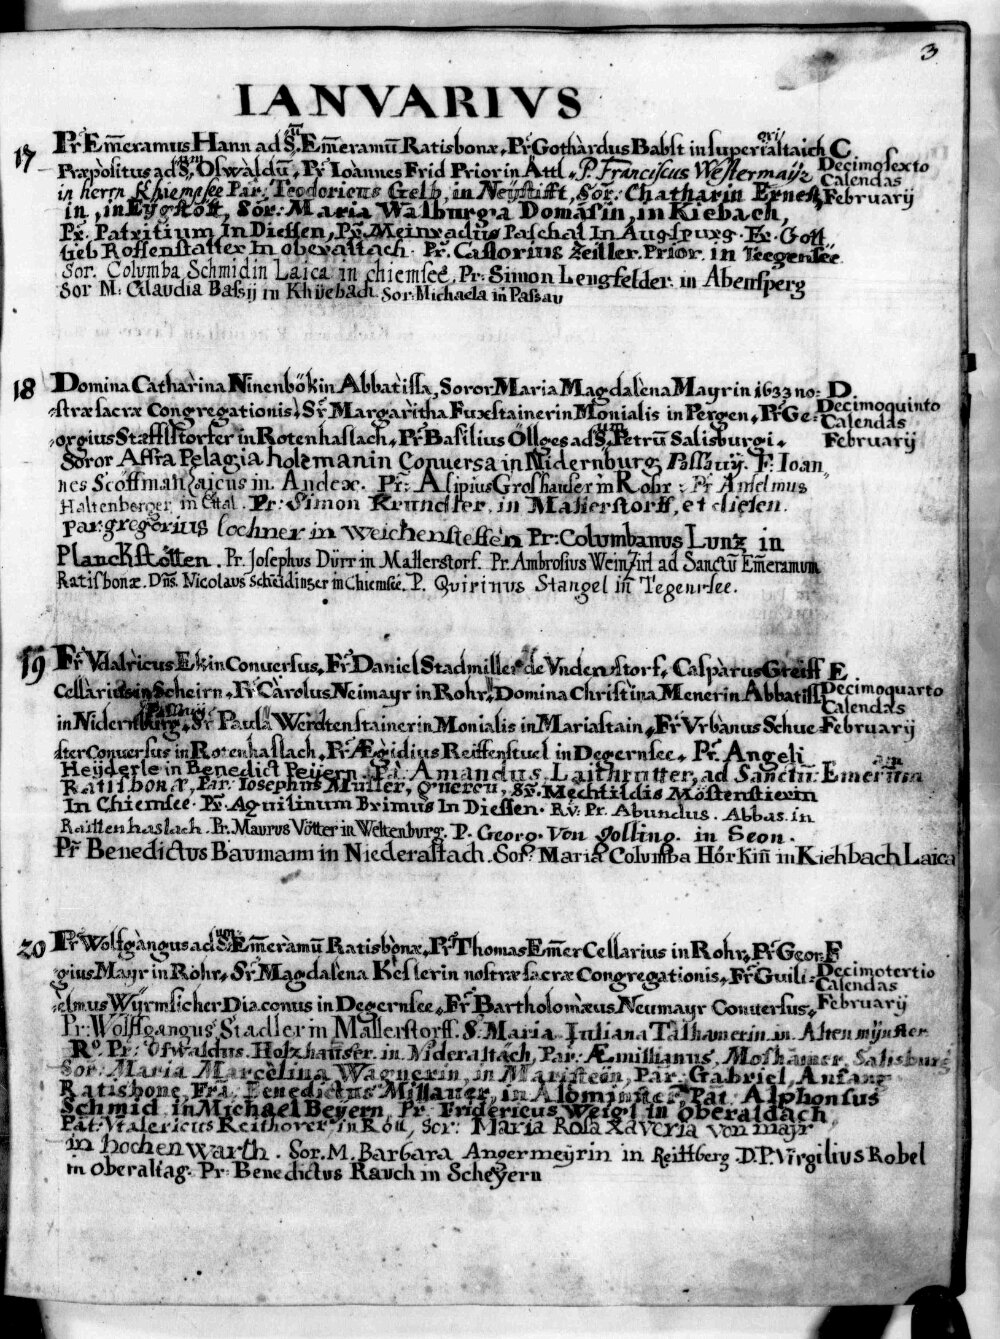 3
IANVARIVS
17 Pr Em̄eramus Hann ad S. Em̄eramū Ratisbonæ, Pr Gothàrdus Babst in superiori altaich C
Præpòsitus ad S. Oswàldū, Pr Ioànnes Frid Prior in Attl, P. Franciscus Westermayr Decimosexto
in herrn Chiemsee Par: Teodoricus Gelb, in Neÿstifft, Sor: Chatharin Ernest Calendas
in, in Eÿgstött, Sor: Maria Walburga Domasin, in Kiebach, Februarij
Pr. Patritium In Diessen, Pr. Meinradus Paschal In Augspurg. Fr. Gott
lieb Roffenstatter In oberaltach. Pr. Castorius Zeiller. Prior. in Teegensee
Sor. Columba Schmidin Laica in chiemseé. Pr: Simon Lengfelder. in Abensperg
Sor M: Claudia Bassÿ in Khüebach. Sor: Michaela in Passau
18 Domina Catharina Ninenbökin Abbàtissa, Soror Maria Magdalèna Mayrin 1633 no: D.
stræ sacræ Congregationis, Sr Margaritha Fuxstainerin Monialis in Pergen, Pr Ge: Decimoquinto
orgius Stæfflstorfer in Rotenhaslach, Pr Basilius Öllges ad S. Petrū Salisburgi, Calendas
Soror Affra Pelagia holzmanin Conuersa in Nidernburg Passauÿ. F. Ioan Februarij
nes Scöffman Laicus in. Andex. Pr: Alipius Groshauser in Rohr: Pr Anselmus
Haltenberger in Ettal. Pr: Simon in Mallerstorff, et diesen.
par: gregorius lochner in weichensteffèn Pr: Columbanus Lunz in
Planckstötten. Pr. Josephus Dürr in Mallerstorf. Pr. Ambrosius Weinzirl ad Sanctū Em̄eramum
Ratisbonæ. Dn̄s. Nicolaus Scheidinger in Chiemseé. P. Quirinus Stangel in Tegernsee.
19 Fr Vdalricus Ekin Conuersus, Fr Daniel Stadmiller de Vndenstorf, Caspàrus Greiff E.
Cellàrius in Scheirn, Fr Càrolus Neimayr in Rohr, Domina Christina Menerin Abbatiss Decimoquarto
in Nidernburg Passauij, Sr Paula Werdtenstainerin Monialis in Mariastain, Fr Vrbànus Schue Calendas
ster Conuersus in Rotenhaslach, Fr Ægidius Reiffenstuel in Degernsee, Pr. Angeli Februarij
Heÿderle in Benedict Peÿern. Pa: Amandus Laithrutter, ad Sanctū: Emer̄am
Ratisbonæ, Par: Iosephus Müller, Sr. Mechtildis Möstenstierin
In Chiemsee. Pr. Aquilinum Brimus In Diessen. Rv: Pr. Abundus. Abbas. in
Raittenhaslach. Pr. Maurus Vötter in Weltenburg. P. Georg. Von Jolling. in Seon.
Pr̄ Benedictus Baumann in Niederaltach. Sor: Maria Columba Hörkin̄ in Kiehbach Laica
20 Pr Wolfgàngus ad S. Em̄eràmū Ratisbònæ, Pr Thomas Em̄er Cellarius in Rohr, Pr Geor: F
gius Mayr in Rohr, Sr Magdalena Keslerin nostræ sacræ Congregationis, Fr Guili: Decimotertio
elmus Wÿrmsicher Diaconus in Degernsee, Fr Bartholomæus Neumayr Conuersus, Calendas
Pr: Wolffgangus Stadler in Mallerstorff. S. Maria Juliana Talhamerin in Altenmÿnster Februarij
R. Pr: Oswaldus. Holzhauser. in Nideraltách, Par: Æmillianus. Moshamer, Salisburg
Sor: Maria Marcelina Wagnerin, in Maristein, Par: Gabriel, Anfang
Ratisbone, Fra: Benedictus Millauer, in Alominster Pat: Alphonsus
Schmid in Michael Beyern, Pr: Fridericus Weigl in oberaldach
Pat: Vtalericus Reithover in Rött, Sor: Maria Rosa Xaveria von mayr
in hochenwarth. Sor. M. Barbara Angermeÿrin in Reittberg D. P. Virgilius Robel
in oberaltag. Pr: Benedictus Rauch in Scheÿern